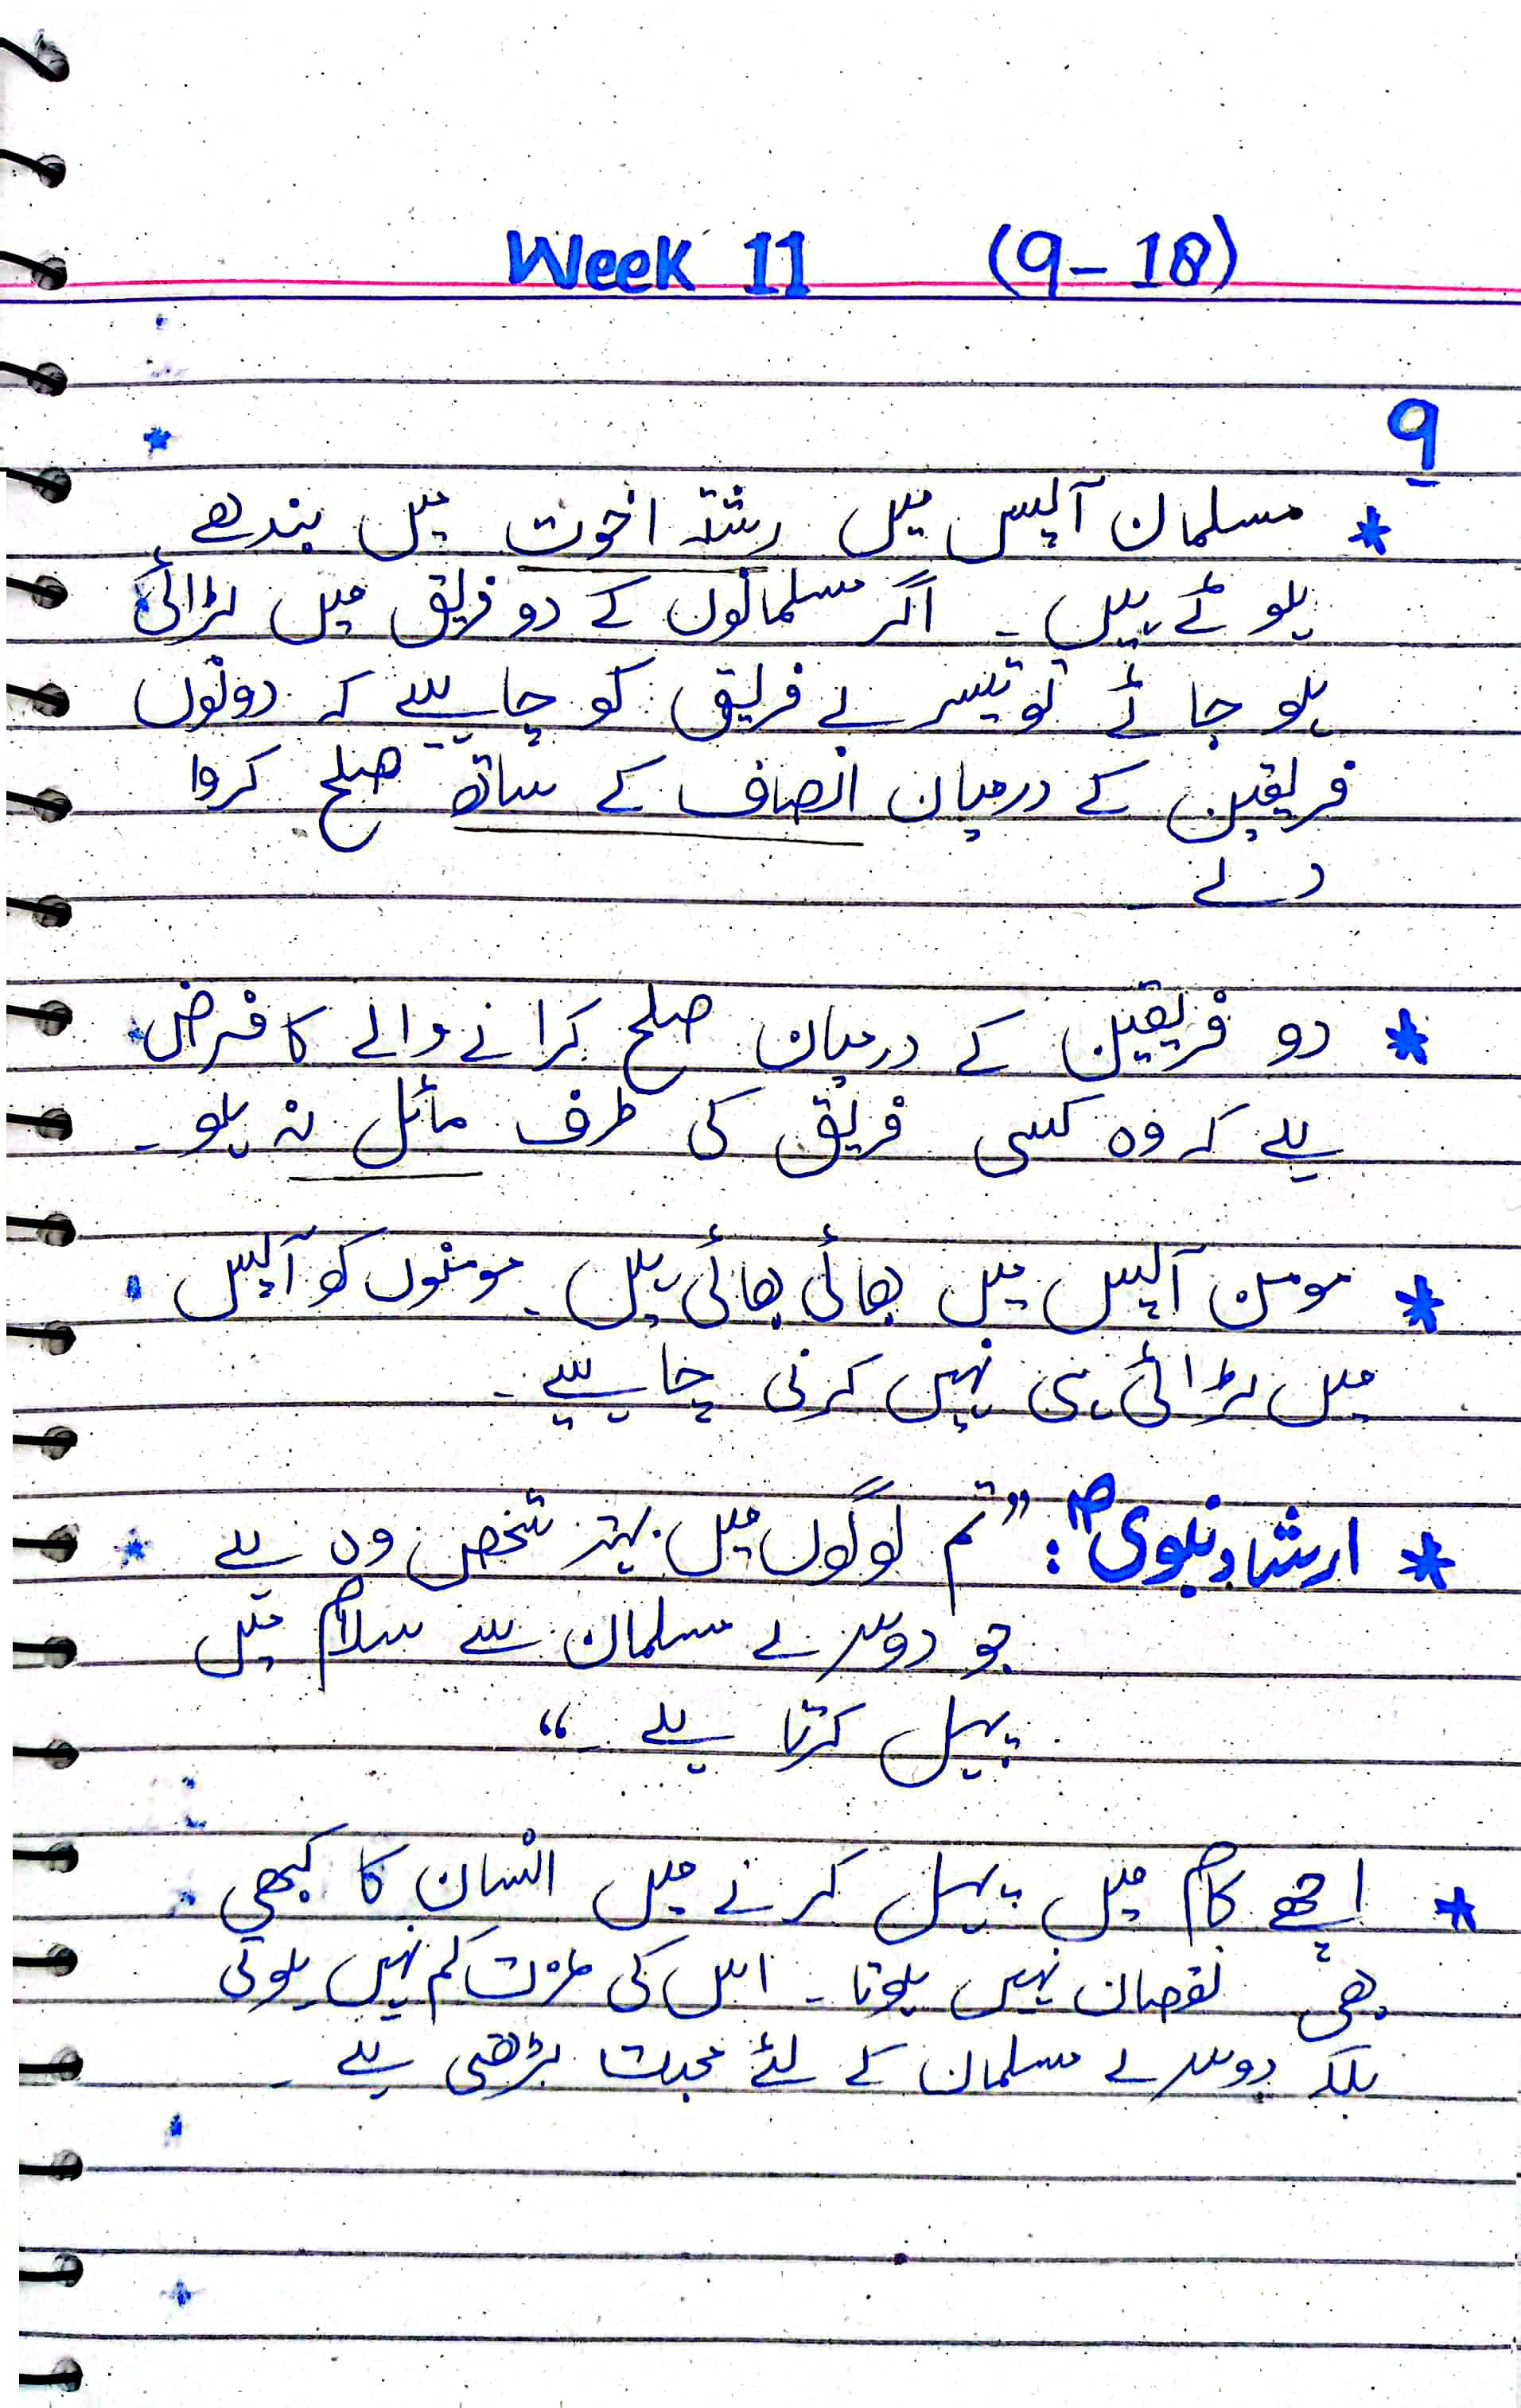 Week 11 (9-18)
9
* مسلمان آپس میں رشتہ اخوت میں بندھے
ہوئے ہیں ۔ اگر مسلمانوں کے دو فریق میں لڑائی
ہو جائے تو تیسرے فریق کو چاہیے کہ دونوں
فریقین کے درمیان انصاف کے ساتھ صلح کروا
دے ۔
* دو فریقین کے درمیان صلح کرانے والے کا فرض
ہے کہ وہ کسی فریق کی طرف مائل نہ ہو ۔
* مومن آپس میں بھائی بھائی ہیں ۔ مومنوں کو آپس
میں لڑائی ہی نہیں کرنی چاہیے ۔
* ارشاد نبوی ؐ : ”تم لوگوں میں بہتر شخص وہ ہے
جو دوسرے مسلمان سے سلام میں
پہل کرتا ہے ۔“
* اچھے کام میں پہل کرنے میں انسان کا کبھی
بھی نقصان نہیں ہوتا ۔ اس کی عزت کم نہیں ہوتی
بلکہ دوسرے مسلمان کے لئے محبت بڑھتی ہے ۔